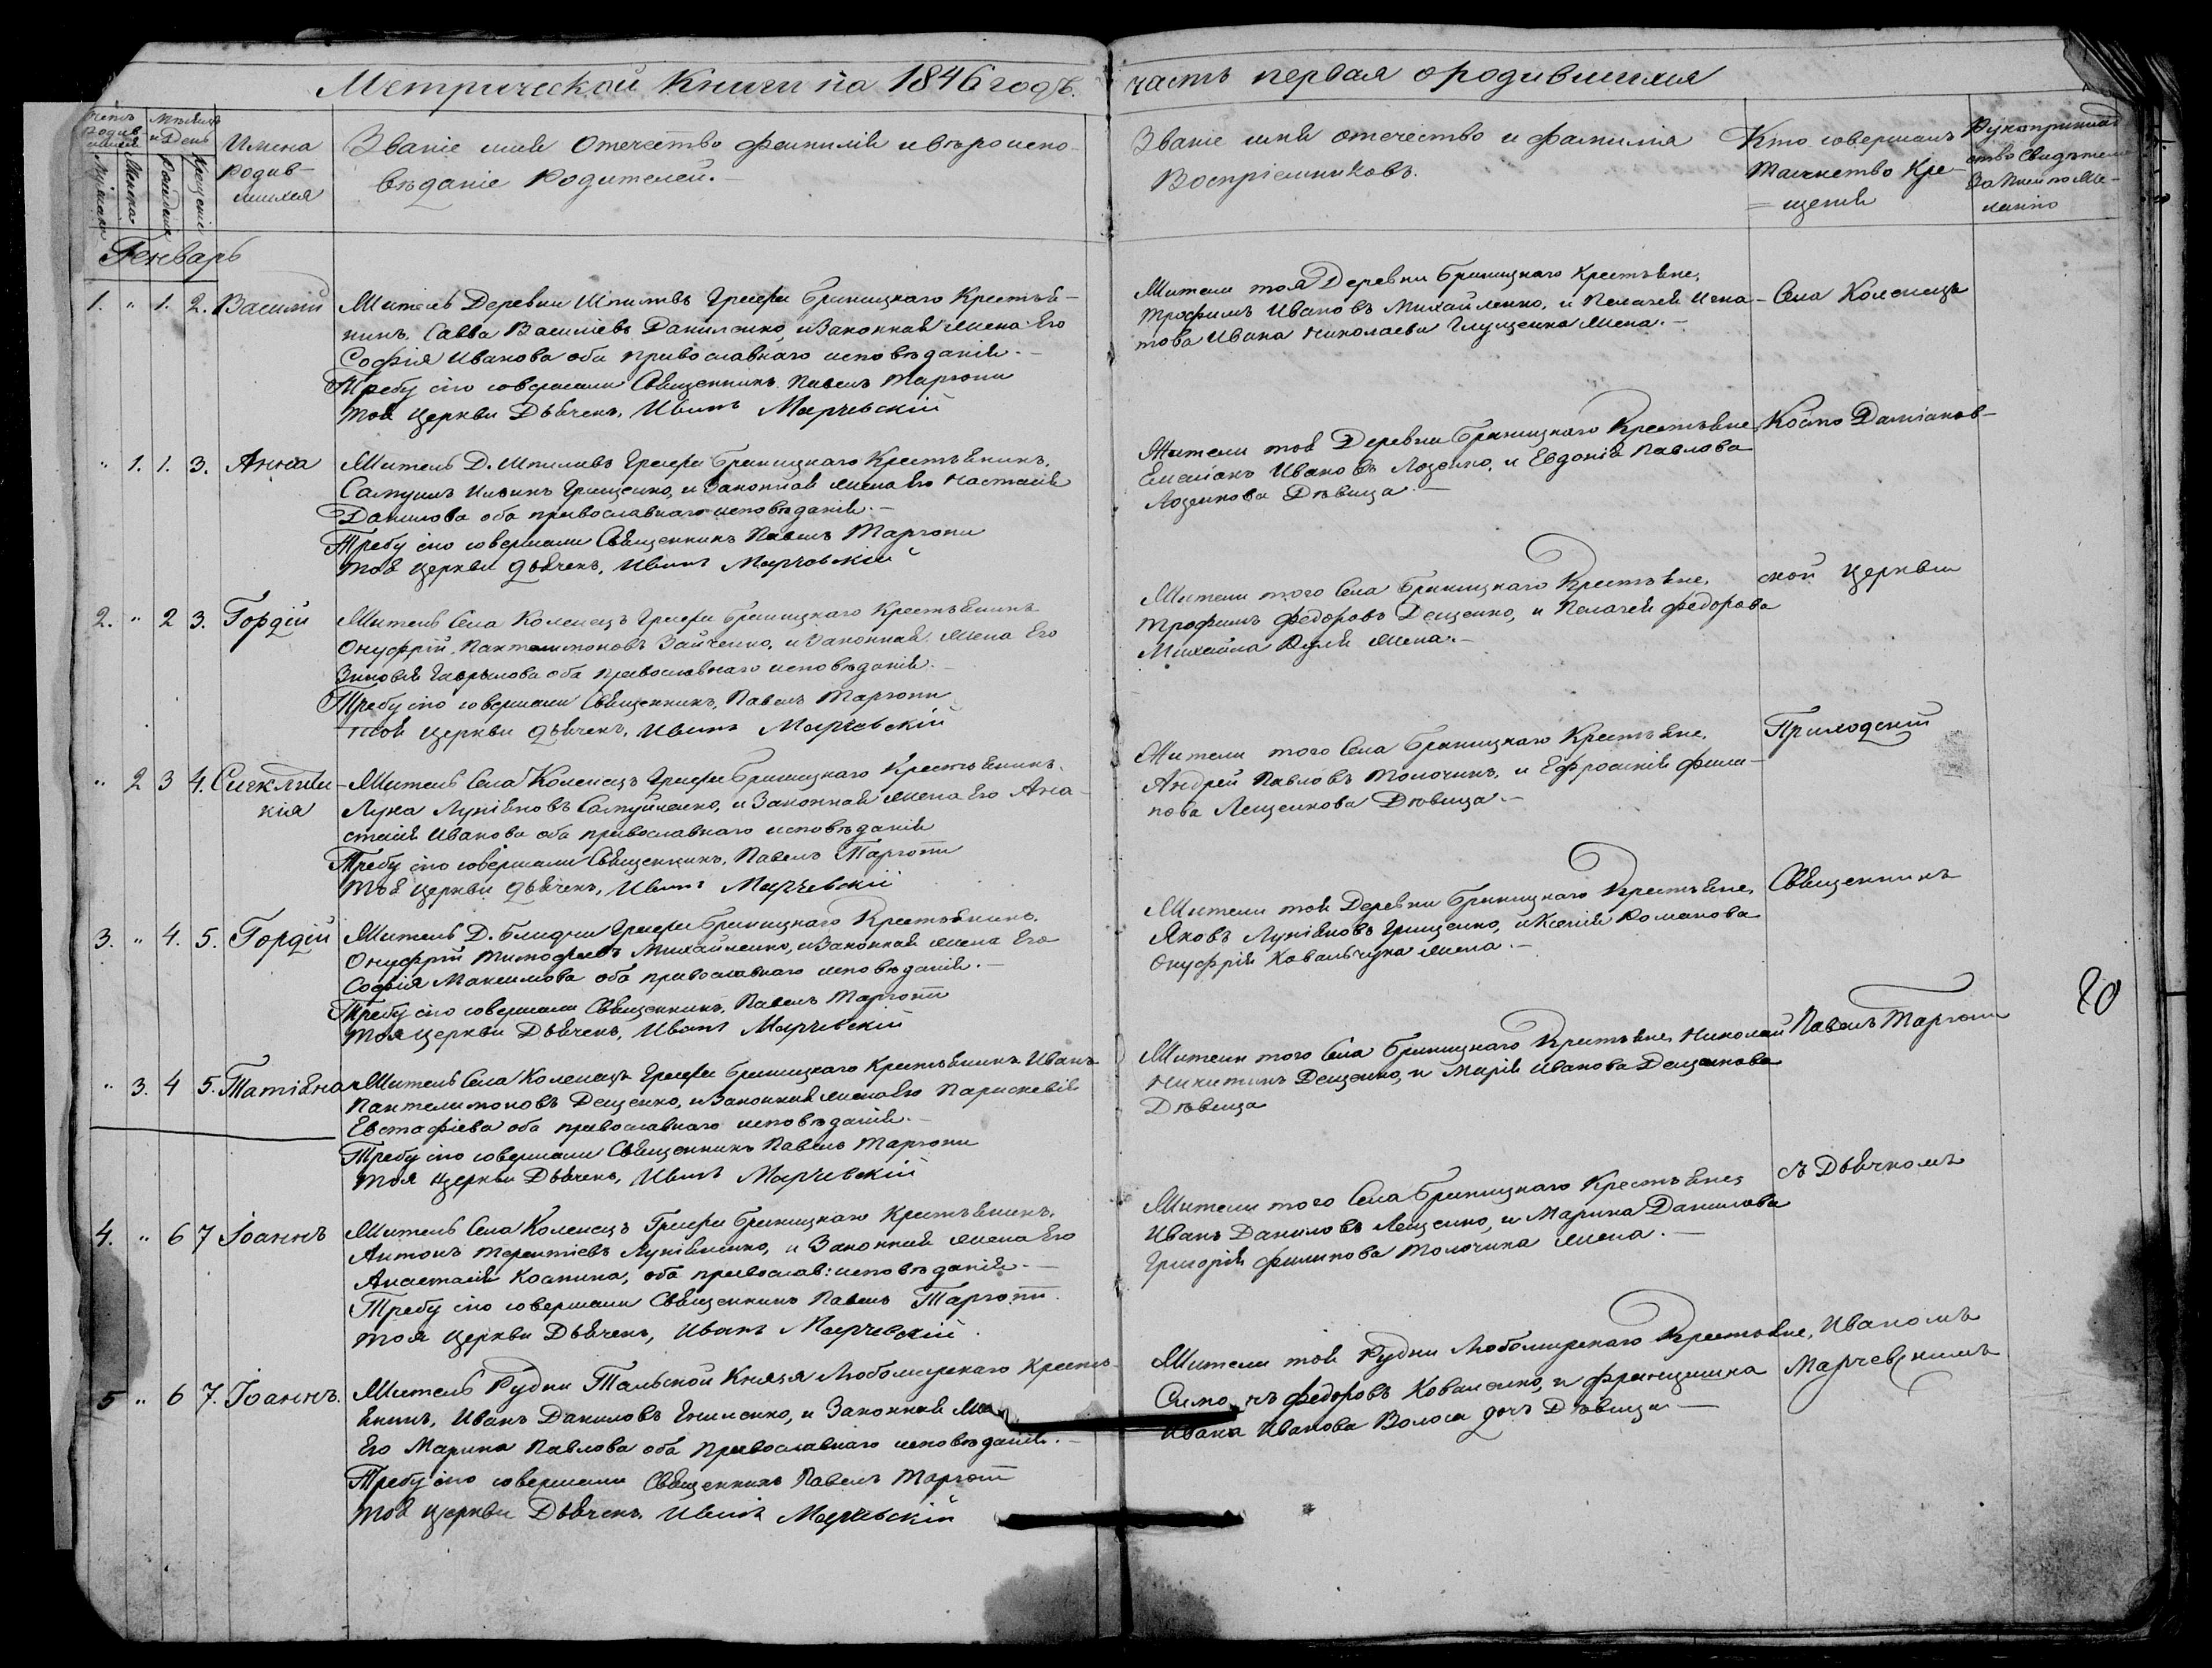 Метрической Книги на 1846 годъ.
часть первая о родившихся
Имена
родив-
шихся
Званіе имя Отечество фамилія и вѣроиспо-
вѣданіе Родителей.
Званіе имя отечество и фамилія
Воспріемниковъ.
Кто совершалъ
таинство Кре-
щенія
Генварь
1. " 1. 2. Василій
Житель Деревни Шпилівъ Грефа Бриницкаго Крестья-
нинъ, Савва Василіевъ Даниленко, и Законная жена Его
Софія Иванова оба православнаго исповѣданія.-
Требу сію совершали Священникъ Павелъ Таргони
тоя церкви Дьячекъ, Иванъ Марчевскій
Жители тоя Деревни Бриницкаго Крестьяне,
Трофимъ Ивановъ Михайленко, и Пелагея Игна-
това Ивана Николаева Глущенка жена.-
Села Коленецъ
" 1. 1. 3. Анна
Житель Д. Шпиливъ Грефа Бриницкаго Крестьянинъ,
Самуилъ Ильинъ Грищенко, и Законная жена Его Настасія
Данилова оба православнаго исповѣданія.-
Требу сію совершали Священникъ Павелъ Таргони
тоя церкви дьячекъ, Иванъ Марчевскій
Жители той Деревни Бриницкаго Крестьяне,
Емеліанъ Ивановъ Лозенко, и Евдокія Павлова
Лозенкова Дѣвица.-
Косто Даміанов-
2. " 2 3. Гордій
Житель Села Коленецъ Грефа Бриницкаго Крестьянинъ
Онуфрій, Пантелимоновъ Зайченко, и Законная жена Его
Зиновія Гаврылова оба православнаго исповѣданія.-
Требу сію совершали Священникъ, Павелъ Таргони
тоя церкви дьячекъ, Иванъ Марчевскій
Жители того Села Бриницкаго Крестьяне,
Трофимъ Федоровъ Дещенко, и Пелагея Федорова
Михайла жена.-
ской церкви
" 2 3 4. Сигклити-
кія
Житель Села Коленецъ Грефа Бриницкаго Крестьянинъ,
Лука Лукіяновъ Самуйленко, и Законная жена Его Ана-
стасія Иванова оба православнаго исповѣданія
Требу сію совершали Священникъ, Павелъ Таргони
тоя церкви дьячекъ, Иванъ Марчевскій
Жители того Села Бриницкаго Крестьяне,
Андрей Павловъ Толочинъ, и Ефросинія Фили-
пова Лещенкова Дѣвица.-
Приходскій
3. " 4. 5. Гордій
Житель Д. Блидчи Грефа Бриницкаго Крестьянинъ,
Онуфрій Тимофѣевъ Михайленко, и Законная жена Его
Софія Максимова оба православнаго исповѣданія.-
Требу сію совершали Священникъ, Павелъ Таргони
тоя церкви Дьячекъ, Иванъ Марчевскій
Жители той Деревни Бриницкаго Крестьяне,
Яковъ Лукіяновъ Грищенко, и Ксенія Романова
Онуфрія Ковальчука жена.-
Священникъ
" 3. 4 5. Татіяна
Житель Села Коленецъ Грефа Бриницкаго Крестьянинъ Иванъ
Пантелимоновъ Дещенко, и Законная жена Его Параскевія
Евстафіева оба православнаго исповѣданія.-
Требу сію совершали Священникъ Павелъ Таргони
тоя церкви Дьячекъ, Иванъ Марчевскій
Жители того Села Бриницкаго Крестьяне, Николай
Никитинъ Дещенко, и Марія Иванова Дещенкова
Дѣвица
Павелъ Таргони
20
4. " 6 7 Іоаннъ
Житель Села Коленецъ Грефа Бриницкаго Крестьянинъ,
Антонъ Терентіевъ Лукіяненко, и Законная жена Его
Анастасія Костина, оба православ: исповѣданія.-
Требу сію совершали Священникъ Павелъ Таргони.
тоя церкви Дьячекъ, Иванъ Марчевскій
Жители того Села Бриницкаго Крестьяне,
Иванъ Даниловъ Лещенко, и Марина Данилова
Григорія Филипова Толочина жена.-
съ Дьячкомъ
5 " 6 7. Іоаннъ.
Житель Рудни Тальской Князя Любомирскаго Кресть-
янинъ, Иванъ Даниловъ и Законная
Его Марина Павлова оба православнаго исповѣданія.-
Требу сію совершали Священникъ Павелъ Таргони
тоя церкви Дьячекъ Иванъ Марчевскій
Жители той Рудни Любомирскаго Крестьяне,
Федоровъ Коваленко, и Францишка
Ивана Иванова Волоса дочь Дѣвица.-
Иваномъ
Марчевскимъ